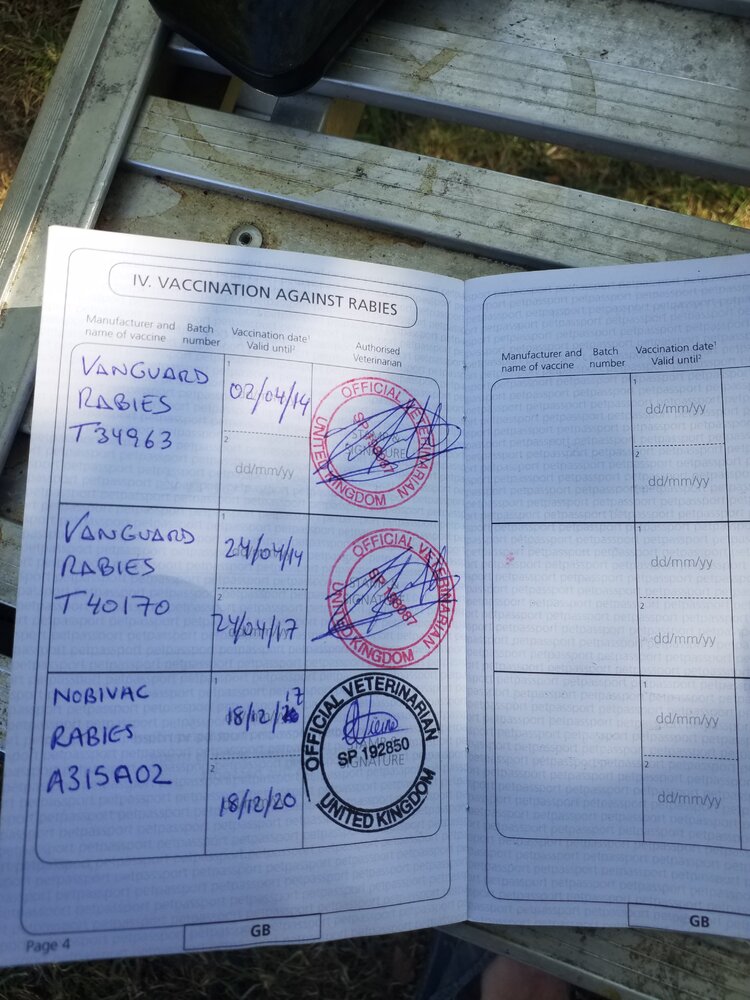 IV. VACCINATION AGAINST RABIES
Manufacturer and name of vaccine
Batch number
Vaccination date¹
Valid until²
Authorised Veterinarian
VANGUARD
RABIES
T34963
1
02/04/14
2
dd/mm/yy
OFFICIAL VETERINARIAN
UNITED KINGDOM
VANGUARD
RABIES
T40170
1
24/04/14
2
24/04/17
OFFICIAL VETERINARIAN
UNITED KINGDOM
NOBIVAC
RABIES
A315A02
1
18/12/17
2
18/12/20
OFFICIAL VETERINARIAN
SP 192850
SIGNATURE
UNITED KINGDOM
Page 4
GB
Manufacturer and name of vaccine
Batch number
Vaccination date¹
Valid until²
1
dd/mm/yy
2
dd/mm/yy
1
dd/mm/yy
2
dd/mm/yy
1
dd/mm/yy
2
dd/mm/yy
GB